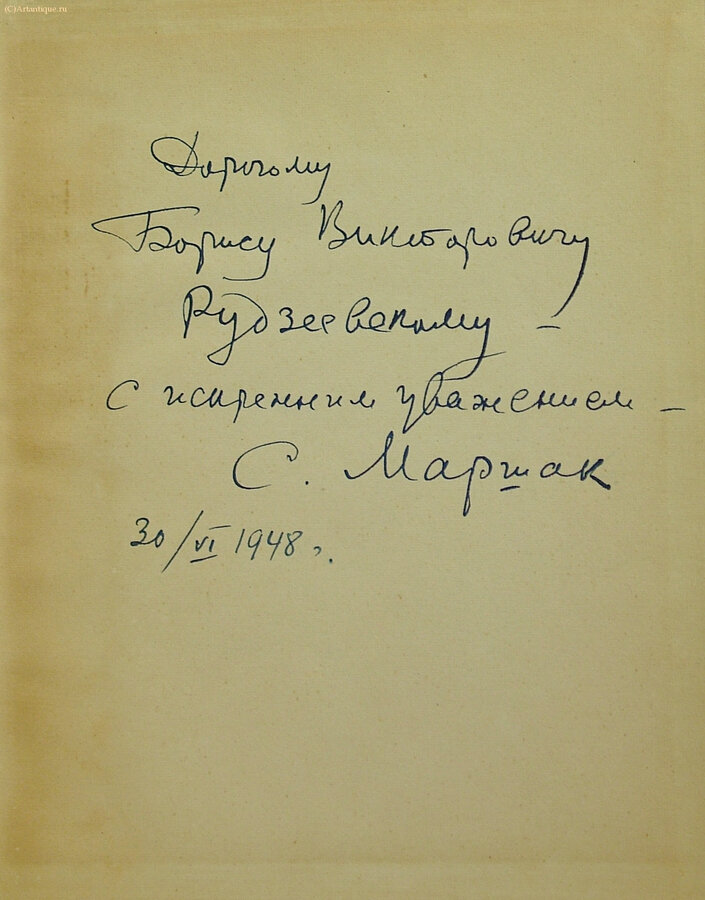 (C)Artantique.ru
Дорогому
Борису Викторовичу
Рудзеевскому –
с искренним уважением –
С. Маршак
30/VI 1948 г.